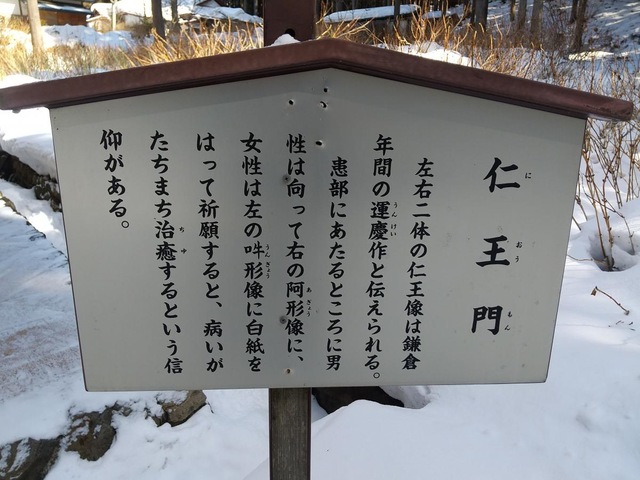 仁王門
におうもん
左右二体の仁王像は鎌倉
年間の運慶作と伝えられる。
うんけい
患部にあたるところに男
性は向って右の阿形像に、
あぎょう
女性は左の吽形像に白紙を
うんぎょう
はって祈願すると、病いが
たちまち治癒するという信
ちゆ
仰がある。